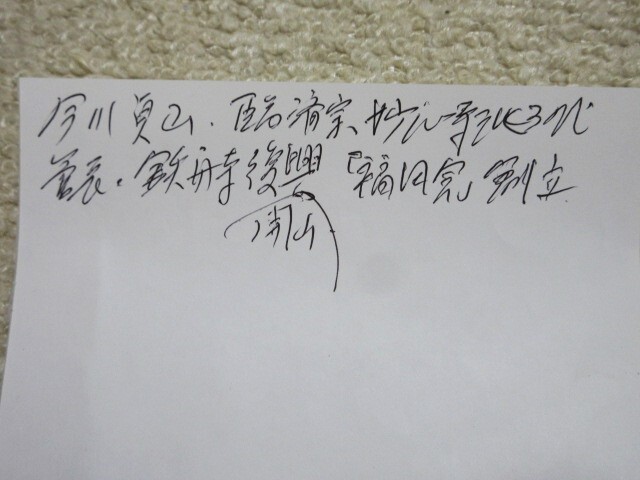 今川貞山、臨済宗、妙心寺派3代
管長、鉄舟寺復興「福田会」創立
開山